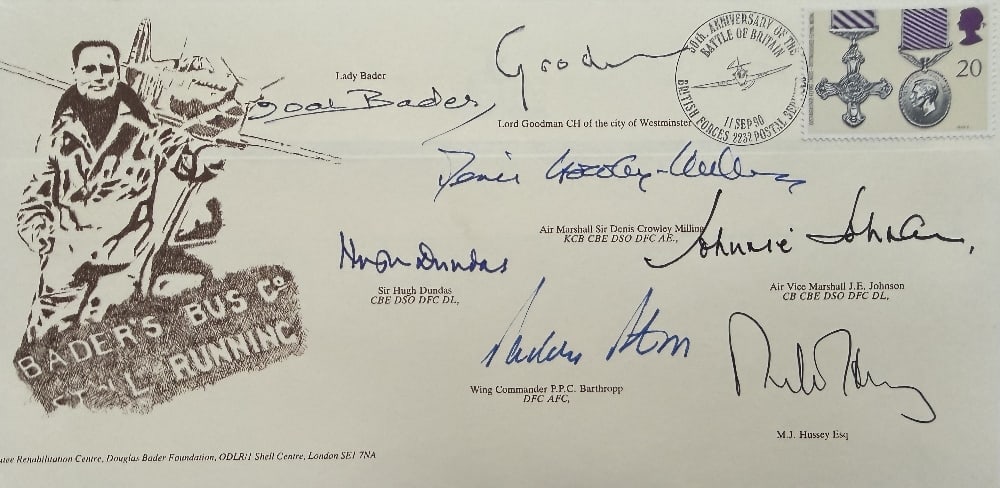 Lady Bader
Joan Bader,
Goodman
Lord Goodman CH of the city of Westminster
50th. ANNIVERSARY OF THE
BATTLE OF BRITAIN
11 SEP 90
BRITISH FORCES 2232 POSTAL SER
20
Denis Crowley-Milling
Air Marshall Sir Denis Crowley Milling
KCB CBE DSO DFC AE.,
Johnnie Johnson,
Air Vice Marshall J.E. Johnson
CB CBE DSO DFC DL,
Hugh Dundas
Sir Hugh Dundas
CBE DSO DFC DL,
Wing Commander P.P.C. Barthropp
DFC AFC,
M.J. Hussey Esq
BADER'S BUS Co
STILL RUNNING
Rehabilitation Centre, Douglas Bader Foundation, ODLR/1 Shell Centre, London SE1 7NA